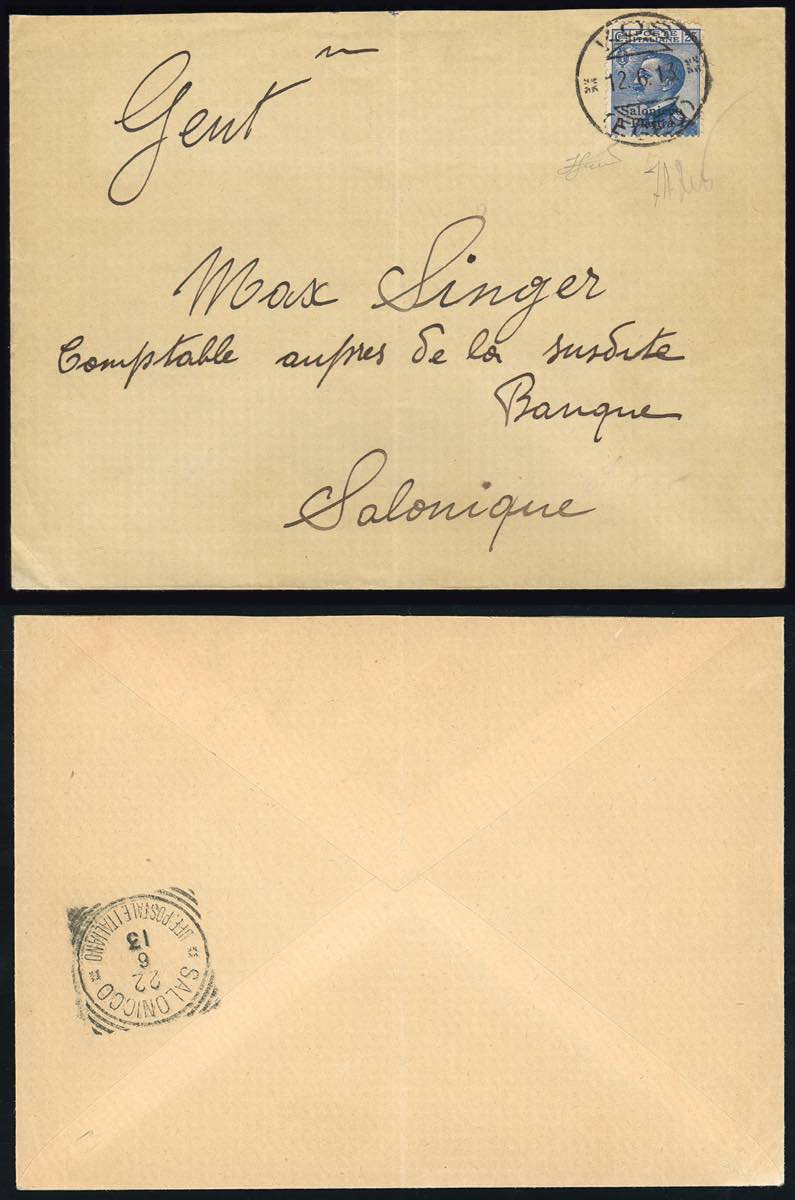 POSTE
ITALIANE
25
KOS
12.6.13
(EGEO)
Salonicco
Gent
Max Singer
Comptable aupres de la susdite
Banque
Salonique
UFF. POSTALE ITALIANO
13
6
22
SALONICCO